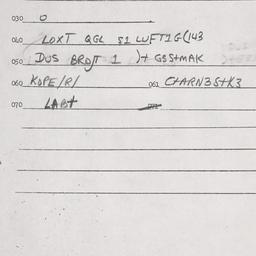 030 0
040 LOXT QGL S1 LUFT1G(143
050 DUS BROJT 1 )+ GSS+MAK
060 KOPE/R/ 061 C+ARN3S+K3
070 LAB+